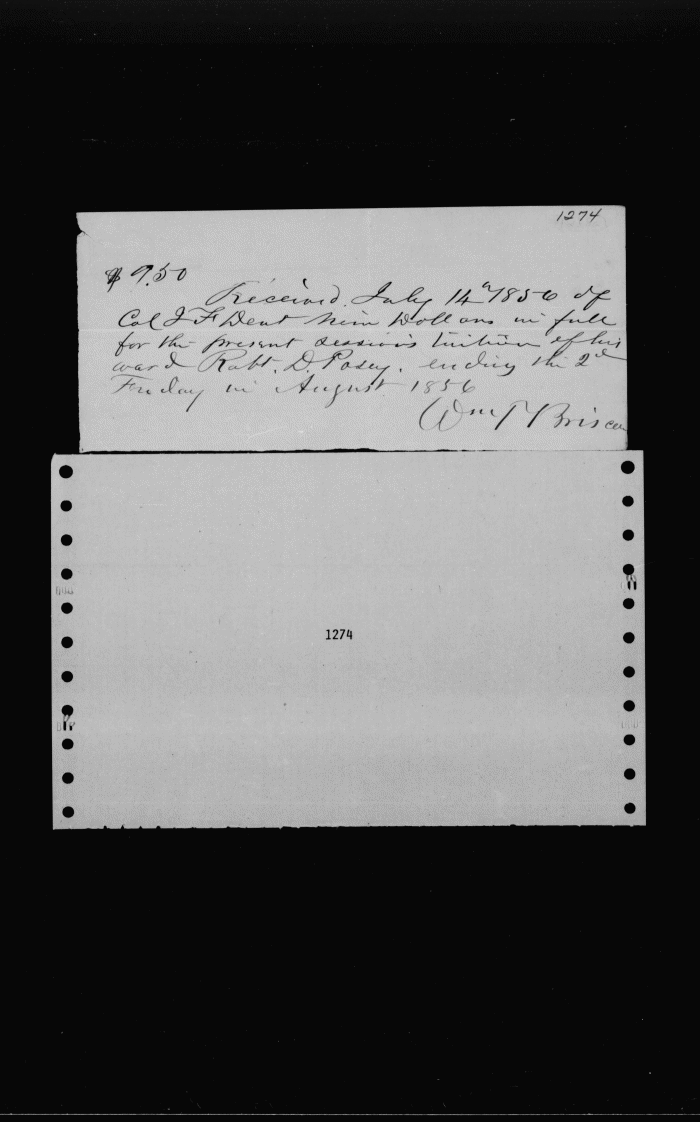 1274
$ 9.50
Received July 14th 1856 of
Col J F Dent Nine Dollars in full
for the present session's tuition of his
ward Robt. D. Posey, ending the 2nd
Friday in August 1856
Wm T Briscoe
1274